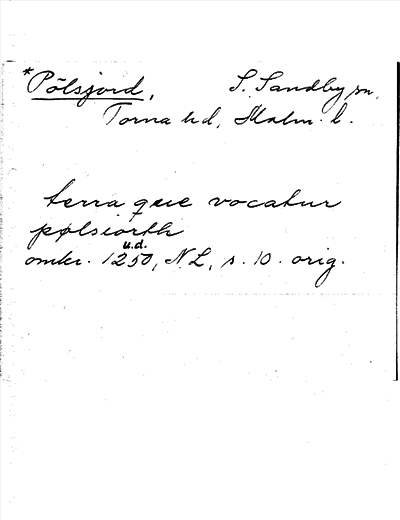 *Pölsjord, S. Sandby sn,
Torna hd, Malm. l.
terra que vocatur
pølsiorth
u.d.
omkr. 1250, NL, s. 10. orig.